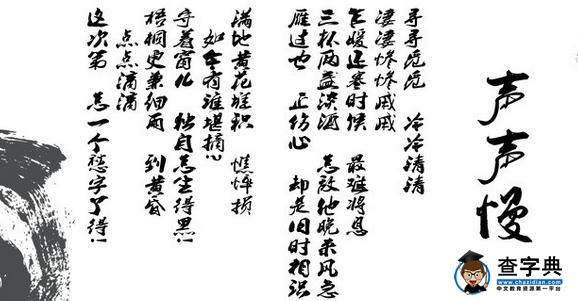 声声慢
寻寻觅觅 冷冷清清
凄凄惨惨戚戚
乍暖还寒时候 最难将息
三杯两盏淡酒 怎敌他晚来风急
雁过也 正伤心 却是旧时相识
满地黄花堆积 憔悴损
如今有谁堪摘!
守着窗儿 独自怎生得黑!
梧桐更兼细雨 到黄昏
点点滴滴
这次第 怎一个愁字了得!
查字典
www.chazidian.com
中文教育资源第一平台